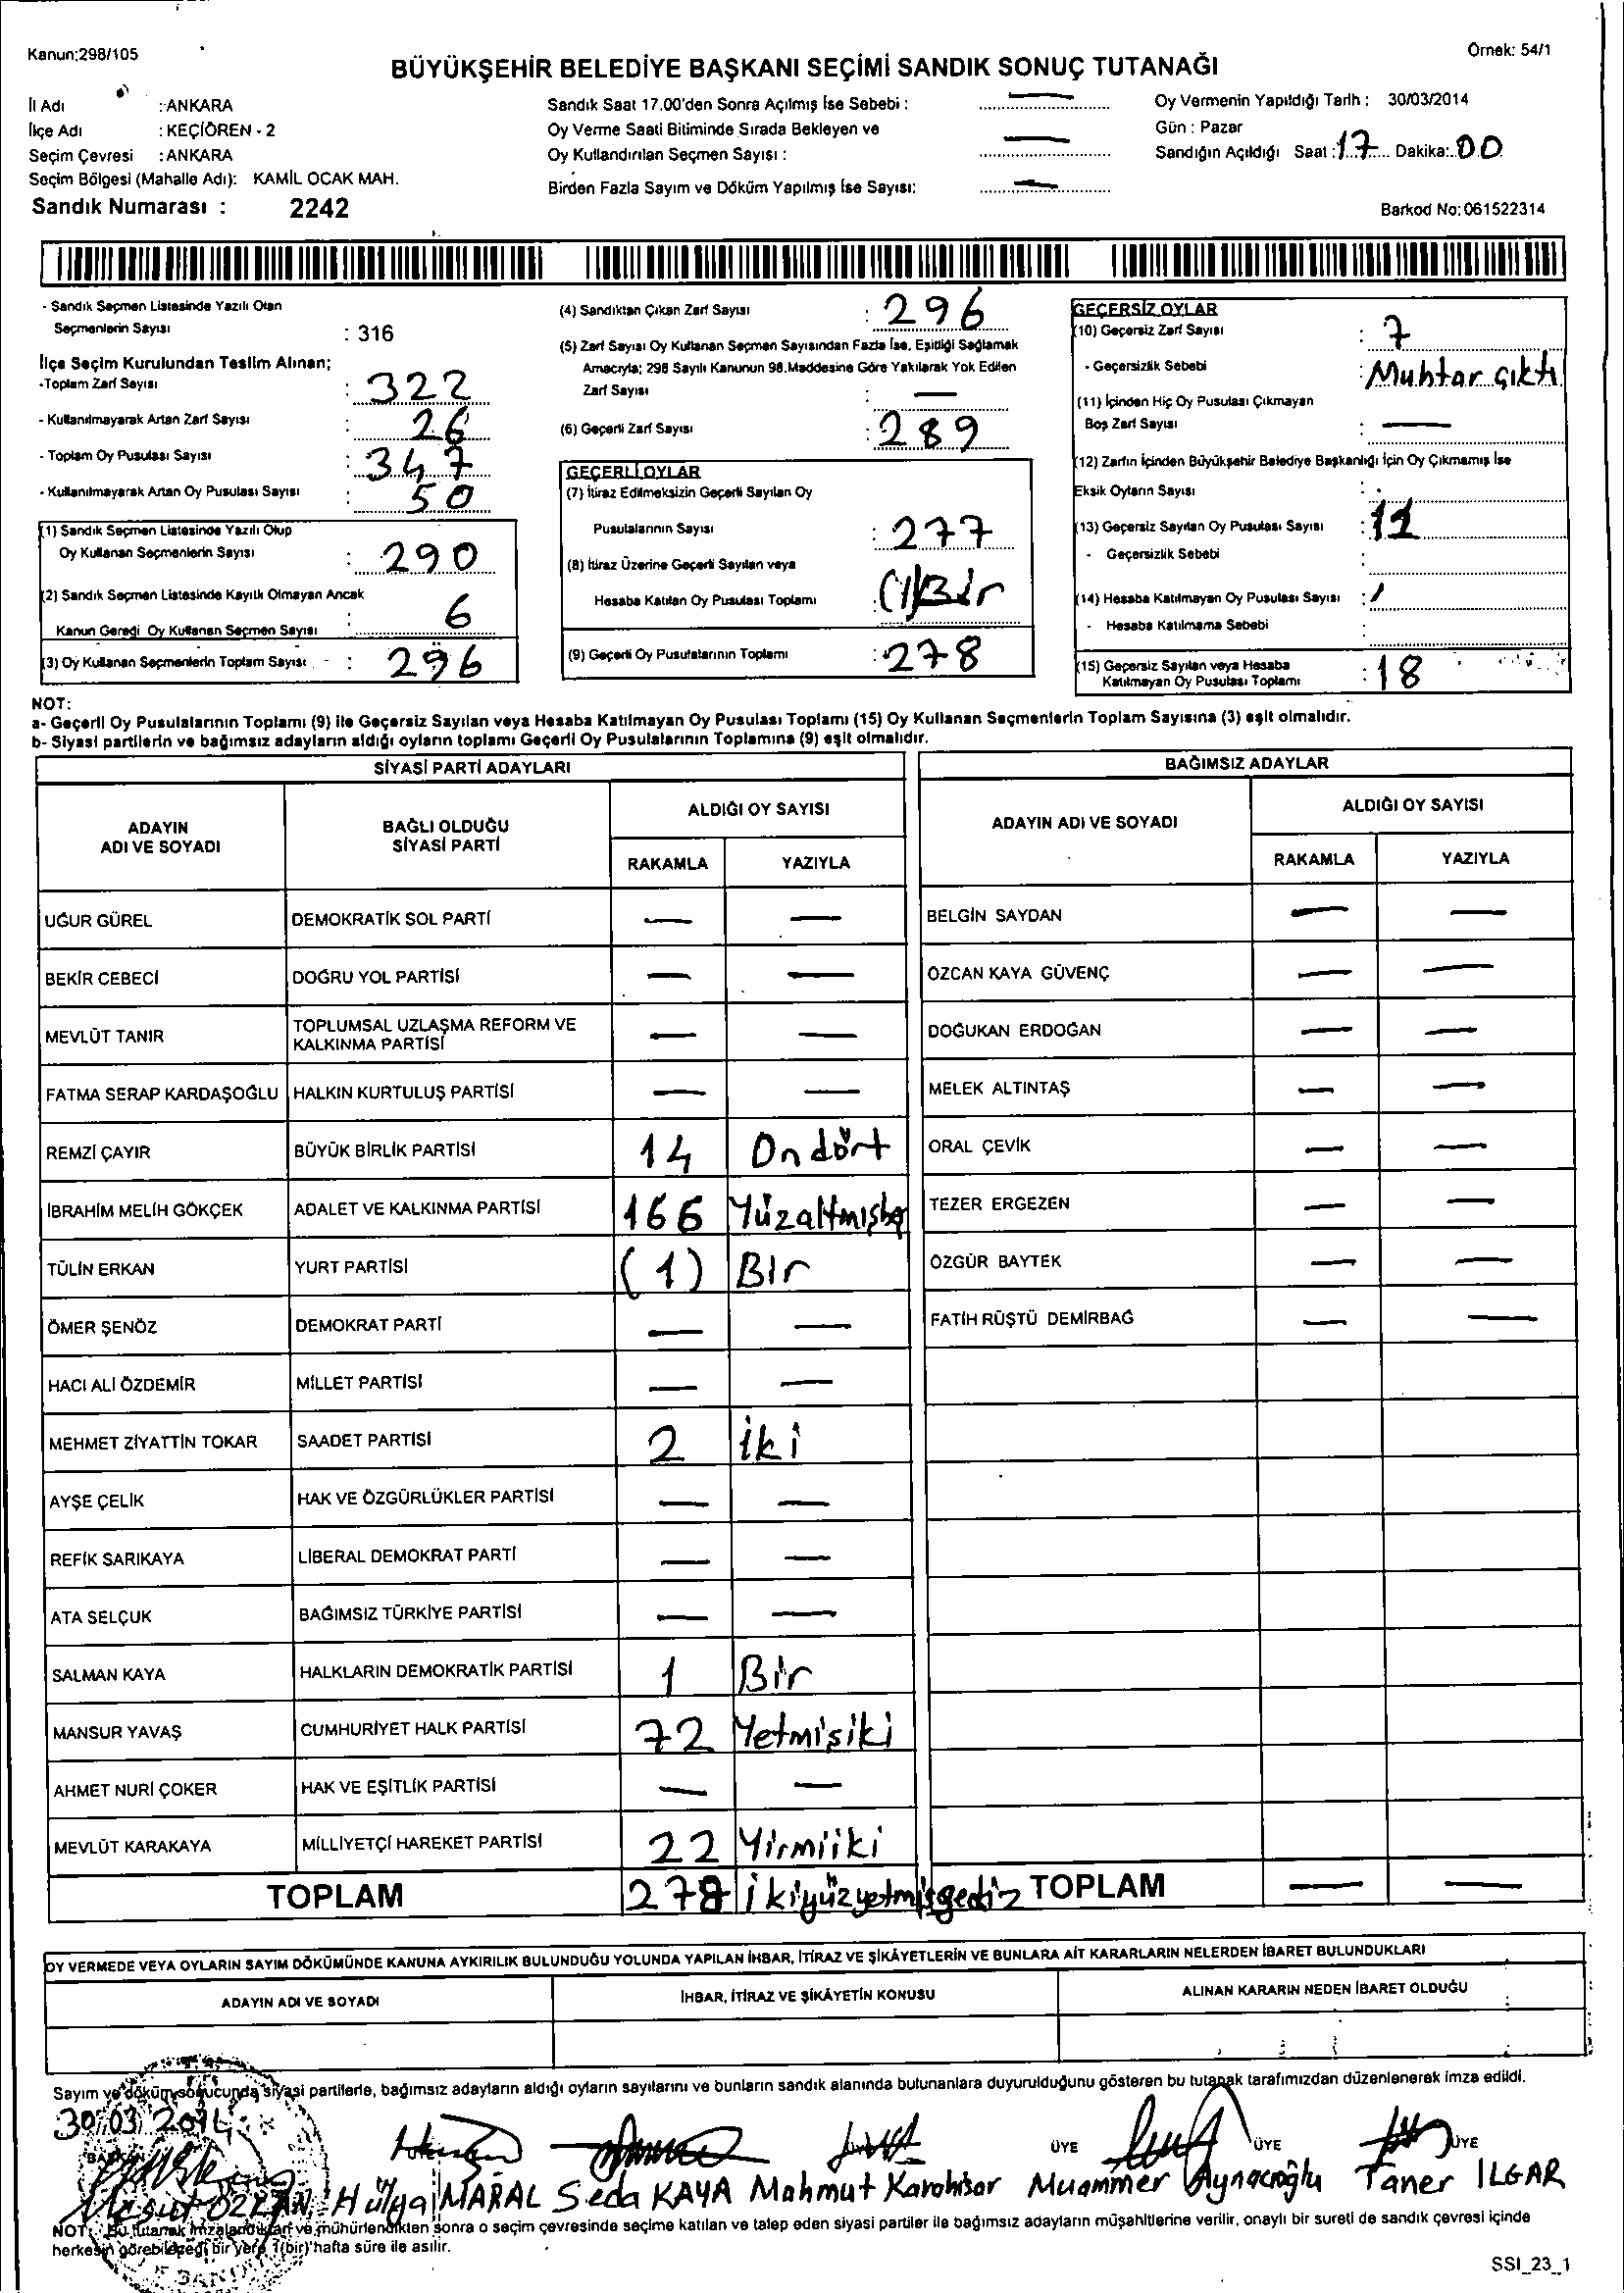 Kanun:298/105
Örnek: 54/1
BÜYÜKŞEHİR BELEDİYE BAŞKANI SEÇİMİ SANDIK SONUÇ TUTANAĞI
İl Adı : ANKARA
İlçe Adı : KEÇİÖREN - 2
Seçim Çevresi : ANKARA
Seçim Bölgesi (Mahalle Adı): KAMİL OCAK MAH.
Sandık Numarası : 2242
Sandık Saat 17.00'den Sonra Açılmış İse Sebebi : —
Oy Verme Saati Bitiminde Sırada Bekleyen ve
Oy Kullandırılan Seçmen Sayısı : —
Birden Fazla Sayım ve Döküm Yapılmış İse Sayısı: —
Oy Vermenin Yapıldığı Tarih : 30/03/2014
Gün : Pazar
Sandığın Açıldığı Saat : 17 Dakika: 00
Barkod No: 061522314
- Sandık Seçmen Listesinde Yazılı Olan
Seçmenlerin Sayısı : 316
İlçe Seçim Kurulundan Teslim Alınan;
-Toplam Zarf Sayısı : 322
- Kullanılmayarak Artan Zarf Sayısı : 26
- Toplam Oy Pusulası Sayısı : 347
- Kullanılmayarak Artan Oy Pusulası Sayısı : 50
(1) Sandık Seçmen Listesinde Yazılı Olup
Oy Kullanan Seçmenlerin Sayısı : 290
(2) Sandık Seçmen Listesinde Kayıtlı Olmayan Ancak
Kanun Gereği Oy Kullanan Seçmen Sayısı : 6
(3) Oy Kullanan Seçmenlerin Toplam Sayısı : 296
(4) Sandıktan Çıkan Zarf Sayısı : 296
(5) Zarf Sayısı Oy Kullanan Seçmen Sayısından Fazla İse, Eşitliği Sağlamak
Amacıyla; 298 Sayılı Kanunun 98.Maddesine Göre Yakılarak Yok Edilen
Zarf Sayısı : —
(6) Geçerli Zarf Sayısı : 289
GEÇERLİ OYLAR
(7) İtiraz Edilmeksizin Geçerli Sayılan Oy
Pusulalarının Sayısı : 277
(8) İtiraz Üzerine Geçerli Sayılan veya
Hesaba Katılan Oy Pusulası Toplamı : (1) Bir
(9) Geçerli Oy Pusulalarının Toplamı : 278
GEÇERSİZ OYLAR
(10) Geçersiz Zarf Sayısı : 7
- Geçersizlik Sebebi : Muhtar çıktı
(11) İçinden Hiç Oy Pusulası Çıkmayan
Boş Zarf Sayısı : —
(12) Zarfın İçinden Büyükşehir Belediye Başkanlığı İçin Oy Çıkmamış İse
Eksik Oyların Sayısı :
(13) Geçersiz Sayılan Oy Pusulası Sayısı : 11
- Geçersizlik Sebebi
(14) Hesaba Katılmayan Oy Pusulası Sayısı : /
- Hesaba Katılmama Sebebi :
(15) Geçersiz Sayılan veya Hesaba
Katılmayan Oy Pusulası Toplamı : 18
NOT:
a- Geçerli Oy Pusulalarının Toplamı (9) ile Geçersiz Sayılan veya Hesaba Katılmayan Oy Pusulası Toplamı (15) Oy Kullanan Seçmenlerin Toplam Sayısına (3) eşit olmalıdır.
b- Siyasi partilerin ve bağımsız adayların aldığı oyların toplamı Geçerli Oy Pusulalarının Toplamına (9) eşit olmalıdır.
SİYASİ PARTİ ADAYLARI
ADAYIN ADI VE SOYADI BAĞLI OLDUĞU SİYASİ PARTİ ALDIĞI OY SAYISI
RAKAMLA YAZIYLA
UĞUR GÜREL DEMOKRATİK SOL PARTİ — —
BEKİR CEBECİ DOĞRU YOL PARTİSİ — —
MEVLÜT TANIR TOPLUMSAL UZLAŞMA REFORM VE KALKINMA PARTİSİ — —
FATMA SERAP KARDAŞOĞLU HALKIN KURTULUŞ PARTİSİ — —
REMZİ ÇAYIR BÜYÜK BİRLİK PARTİSİ 14 Ondört
İBRAHİM MELİH GÖKÇEK ADALET VE KALKINMA PARTİSİ 166
TÜLİN ERKAN YURT PARTİSİ (1) Bir
ÖMER ŞENÖZ DEMOKRAT PARTİ — —
HACI ALİ ÖZDEMİR MİLLET PARTİSİ — —
MEHMET ZİYATTİN TOKAR SAADET PARTİSİ 2 iki
AYŞE ÇELİK HAK VE ÖZGÜRLÜKLER PARTİSİ — —
REFİK SARIKAYA LİBERAL DEMOKRAT PARTİ — —
ATA SELÇUK BAĞIMSIZ TÜRKİYE PARTİSİ — —
SALMAN KAYA HALKLARIN DEMOKRATİK PARTİSİ 1 Bir
MANSUR YAVAŞ CUMHURİYET HALK PARTİSİ 72 Yetmişiki
AHMET NURİ ÇOKER HAK VE EŞİTLİK PARTİSİ — —
MEVLÜT KARAKAYA MİLLİYETÇİ HAREKET PARTİSİ 22 Yirmiiki
TOPLAM 278 ikiyüzyetmişsediz
BAĞIMSIZ ADAYLAR
ADAYIN ADI VE SOYADI ALDIĞI OY SAYISI
RAKAMLA YAZIYLA
BELGİN SAYDAN — —
ÖZCAN KAYA GÜVENÇ — —
DOĞUKAN ERDOĞAN — —
MELEK ALTINTAŞ — —
ORAL ÇEVİK — —
TEZER ERGEZEN — —
ÖZGÜR BAYTEK — —
FATİH RÜŞTÜ DEMİRBAĞ — —
TOPLAM — —
OY VERMEDE VEYA OYLARIN SAYIM DÖKÜMÜNDE KANUNA AYKIRILIK BULUNDUĞU YOLUNDA YAPILAN İHBAR, İTİRAZ VE ŞİKÂYETLERİN VE BUNLARA AİT KARARLARIN NELERDEN İBARET BULUNDUKLARI
ADAYIN ADI VE SOYADI İHBAR, İTİRAZ VE ŞİKÂYETİN KONUSU ALINAN KARARIN NEDEN İBARET OLDUĞU
Sayım ve döküm sonucunda siyasi partilerle, bağımsız adayların aldığı oyların sayılarını ve bunların sandık alanında bulunanlara duyurulduğunu gösteren bu tutanak tarafımızdan düzenlenerek imza edildi.
30/03/2014
ÜYE ÜYE ÜYE
Mesut ÖZKAN Hülya MARAL Seda KAYA Mahmut Karahisar Muammer Aynacıoğlu Taner ILGAR
NOT: Bu tutanak imzalandıktan ve mühürlendikten sonra o seçim çevresinde seçime katılan ve talep eden siyasi partiler ile bağımsız adayların müşahitlerine verilir, onaylı bir sureti de sandık çevresi içinde
herkesin görebileceği bir yere 1(bir) hafta süre ile asılır.
SSI_23_1